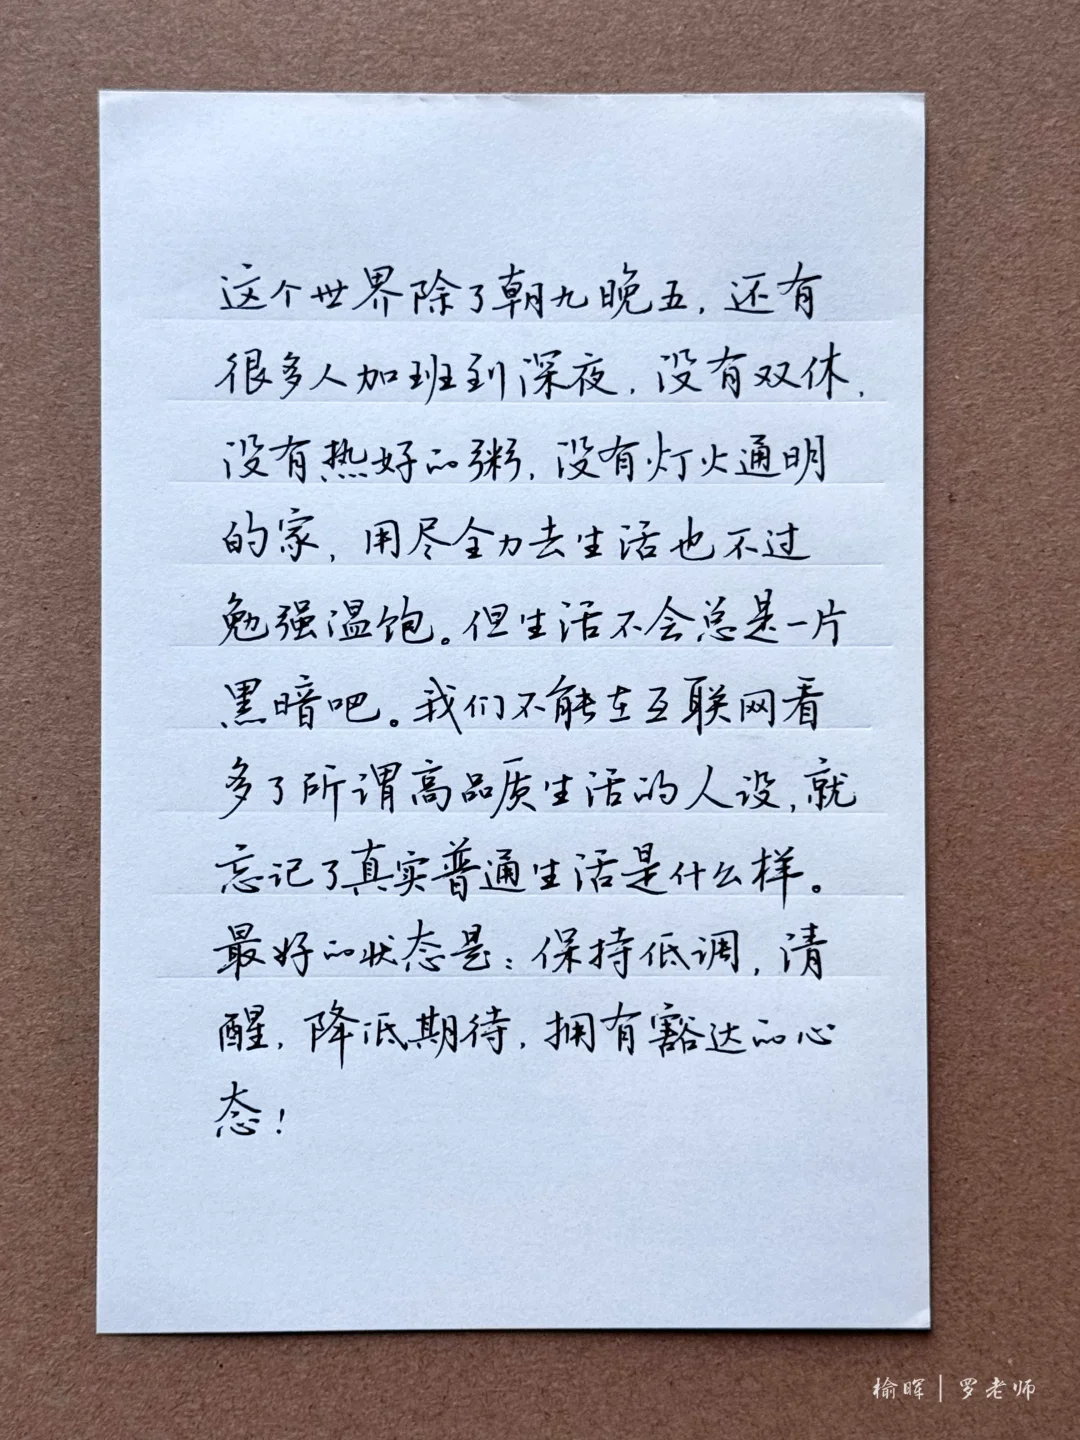 这个世界除了朝九晚五，还有
很多人加班到深夜，没有双休，
没有热好的粥，没有灯火通明
的家，用尽全力去生活也不过
勉强温饱。但生活不会总是一片
黑暗吧。我们不能在互联网看
多了所谓高品质生活的人设，就
忘记了真实普通生活是什么样。
最好的状态是：保持低调，清
醒，降低期待，拥有豁达的心
态！
榆晖|罗老师